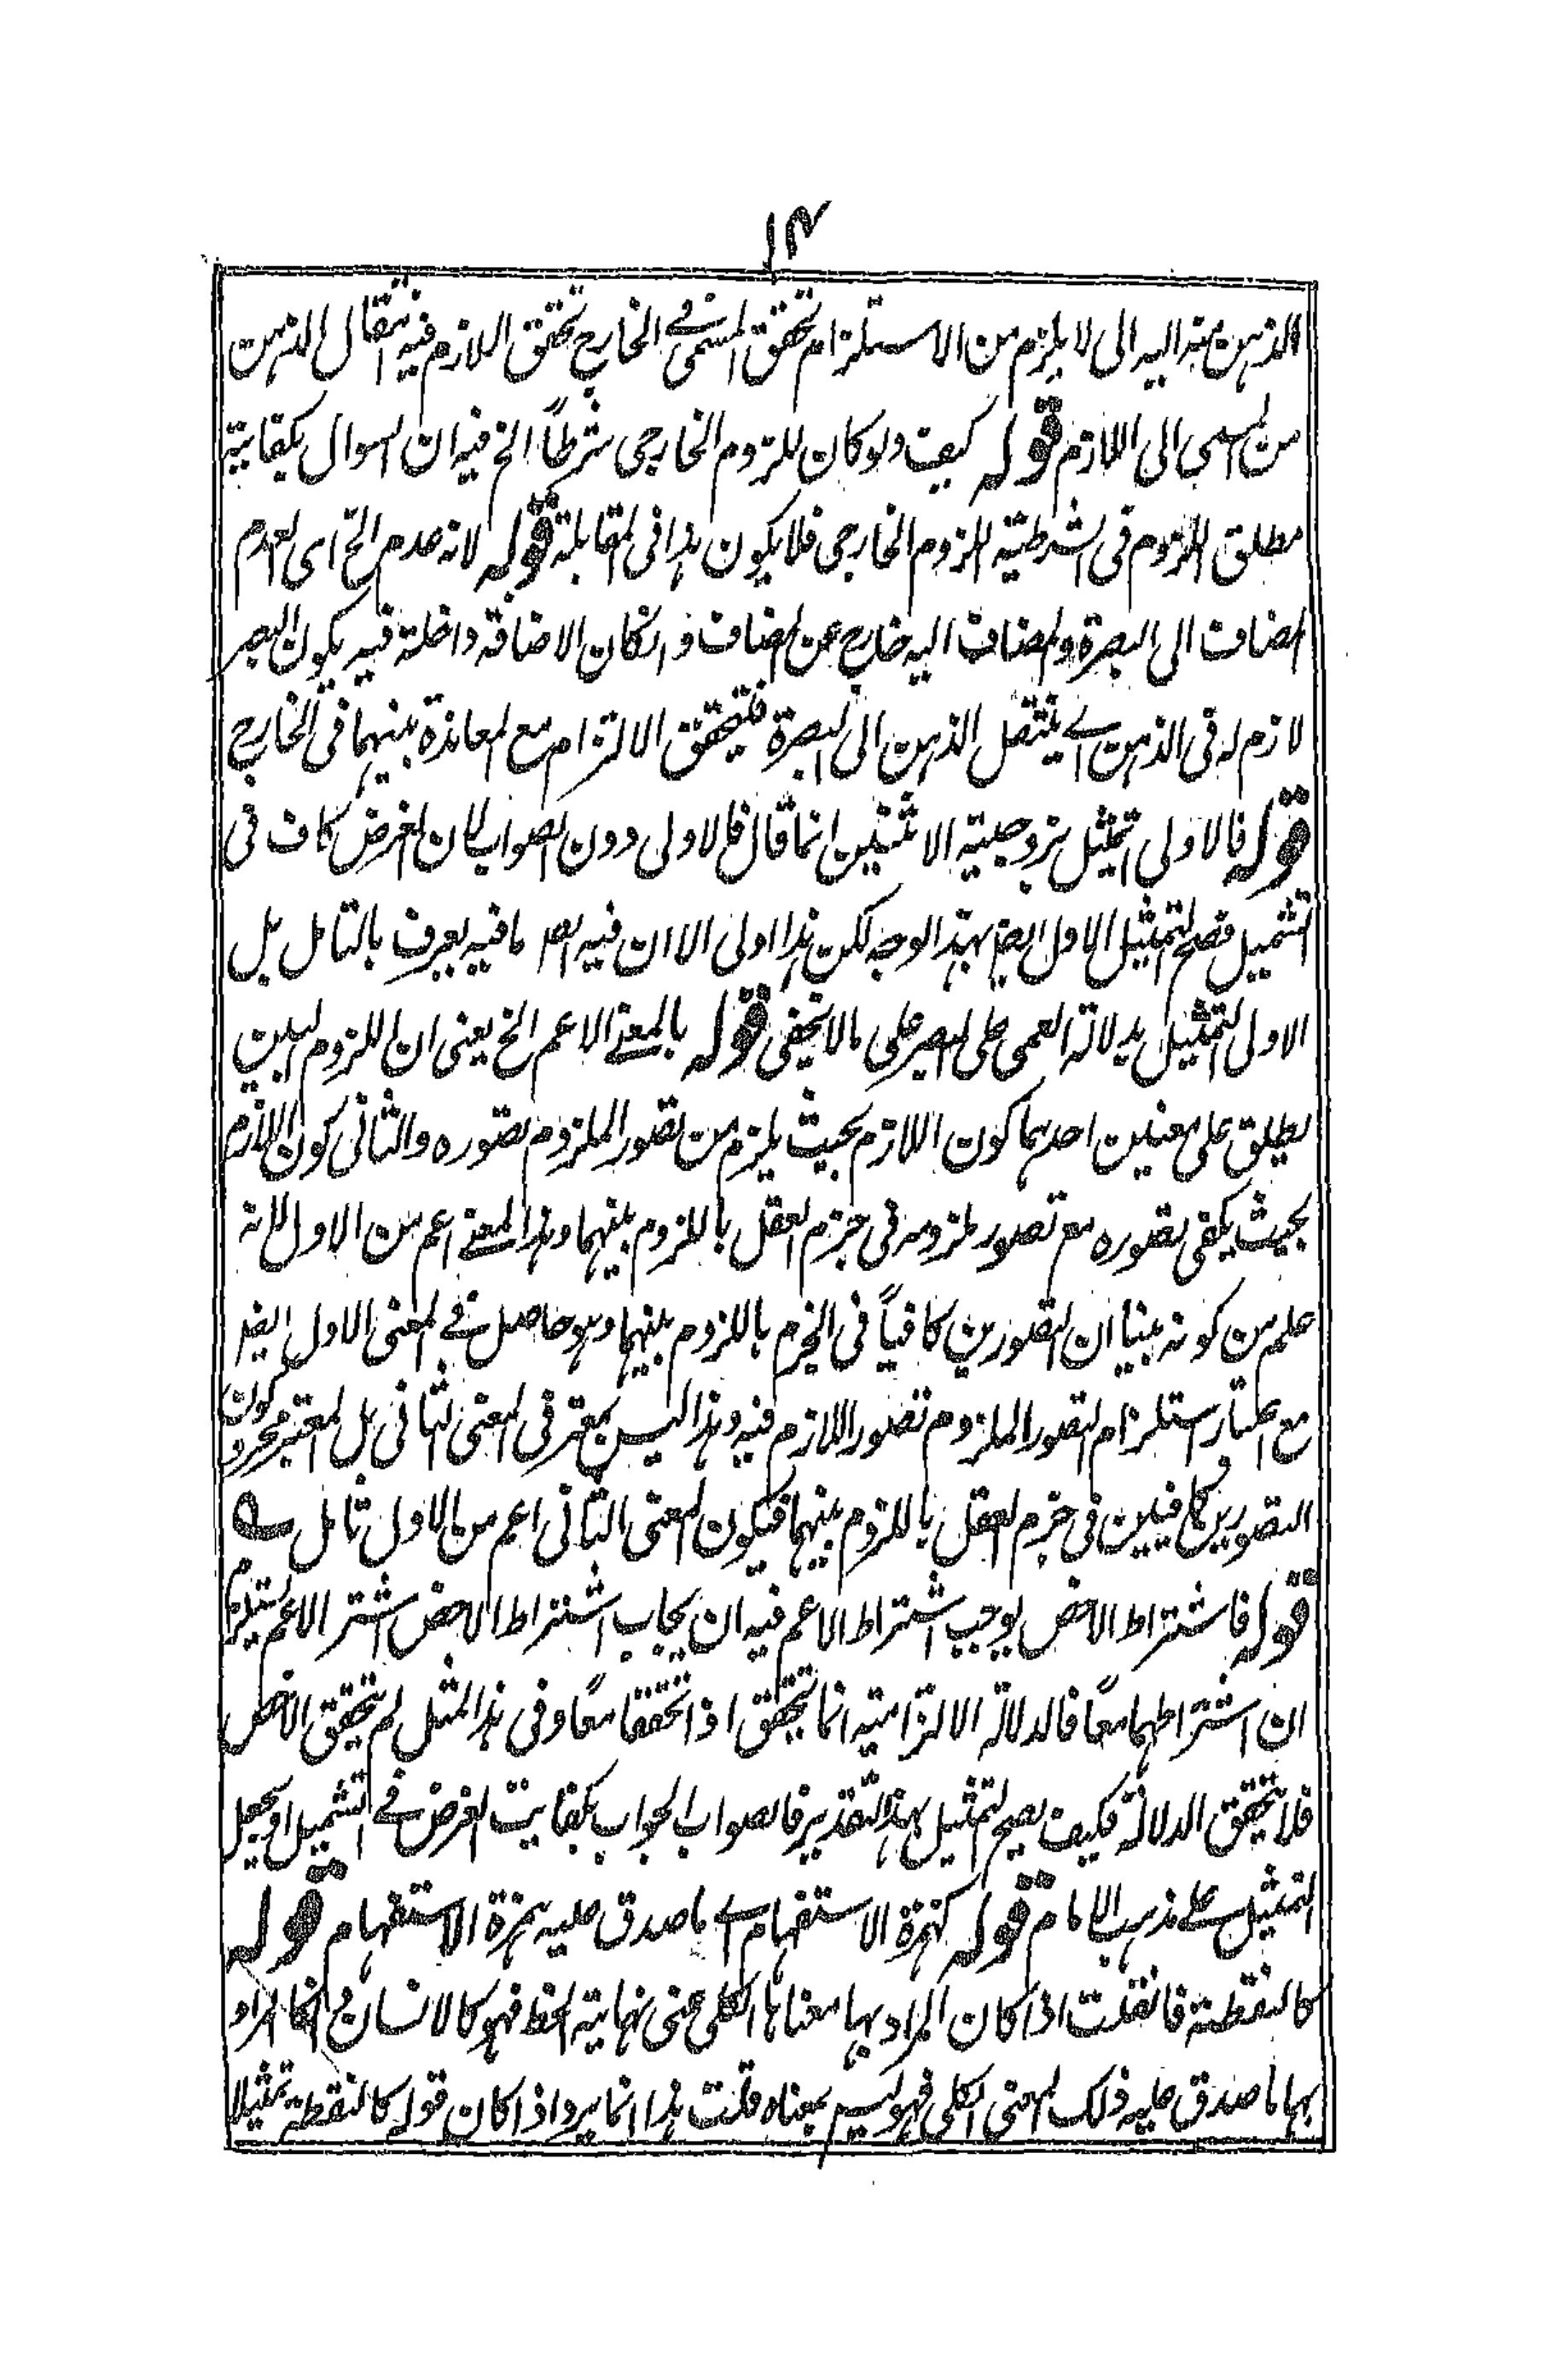 ١٤
الذهن منه اليه الى لا يلزم من الاستلزام تحقق المسمى فى الخارج تحقق اللازم فيه انتقال الذهن
من المسمى الى اللازم قوله كيف ولو كان للزوم الخارجى شرطاً الخ فيه ان السوال بكفاية
مطلق اللزوم فى الشرطية اللزوم الخارجى فلا يكون هذا فى المقابلة قوله لانه عدم الخ اى العدم
المضاف الى البصرة والمضاف اليه خارج عن المضاف وانكان الاضافة داخلة فيه يكون البصر
لازم له فى الذهن اے ينتقل الذهن الى البصرة فيتحقق الالتزام مع المعاندة بينهما فى الخارج
قوله فالاولى التمثيل بزوجية الاثنين انما قال فالاولى دون الصواب لان الغرض كاف فى
التمثيل فصلح التمثيل الاول ايضا بهذا الوجه لكن هذا اولى الا ان فيه ايضا ما فيه يعرف بالتامل بل
الاولى التمثيل بدلالة العمى على البصر على ما لا يخفى قوله بالمعنے الاعم الخ يعنى ان اللزوم البين
يطلق على معنيين احدهما كون اللازم بحيث يلزم من تصور الملزوم تصوره والثانى كون اللازم
بحيث يكفى تصوره مع تصور ملزومه فى جزم العقل باللزوم بينهما وهذا المعنے اعم من الاول لانه
علم من كونه بينا ان التصورين كافياً فى الجزم باللزوم بينهما وهو حاصل فے المعنى الاول ايضا
مع اعتبار استلزام التصور الملزوم تصور اللازم فيه وهذا ليس بمعتبر فى المعنى الثانى بل المعتبر مجرد كون
التصورين كافيين فى جزم العقل باللزوم بينهما فيكون المعنى الثانى اعم من الاول تامل
قوله فاشتراط الاخص يوجب اشتراط الاعم فيه ان يجاب اشتراط الاخص اشتر الاعم يستلزم
ان اشتراطهما معًا فالدلالة الالتزامية انما تتحقق اذا تحققا معًا وفى هذا المثل لم يتحقق الاخص
فلا يتحقق الدلالة فكيف يصح التمثيل بهذا التقدير فالصواب الجواب بكفايت الغرض فے التمثيل او يجعل
التمثيل علے مذهب الامام قوله كهمزة الاستفهام اے ما صدق عليه همزة الاستفهام قوله
كالنقطة فانقلت اذا كان المراد بها معناها الكلى عنى نهاية الخط فهو كالانسان وانكان المراد
بها ما صدق عليه ذلك المعنى الكلى فهو ليس بمعناه قلت هذا انما يرد اذا كان قوله كالنقطة تمثيلا